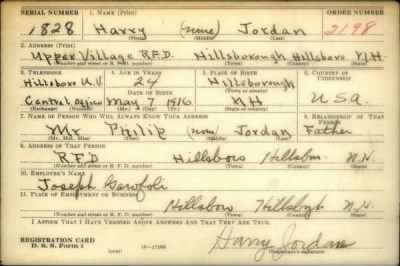 SERIAL NUMBER 1. NAME (Print) ORDER NUMBER
1828 Harry (none) Jordan 2198
(First) (Middle) (Last)
2. ADDRESS (Print)
Upper Village R.F.D. Hillsborough Hillsboro N.H.
(Number and street or R. F. D. number) (Town) (County) (State)
3. TELEPHONE 4. AGE IN YEARS 5. PLACE OF BIRTH 6. COUNTRY OF CITIZENSHIP
Hillsboro U.V. 24 Hillsborough
DATE OF BIRTH
Central Office May 7 1916 NH U.S.a.
7. NAME OF PERSON WHO WILL ALWAYS KNOW YOUR ADDRESS 8. RELATIONSHIP OF THAT PERSON
Mr Philip (non) Jordan Father
(Mr., Mrs., Miss) (First) (Middle) (Last)
9. ADDRESS OF THAT PERSON
R.F.D Hillsboro Hillsboro N.H.
(Number and street or R. F. D. number) (Town) (County) (State)
10. EMPLOYER'S NAME
Joseph Garofoli
11. PLACE OF EMPLOYMENT OR BUSINESS
Hillsboro Hillsbgh N.H.
(Number and street or R. F. D. number) (Town) (County) (State)
I AFFIRM THAT I HAVE VERIFIED ABOVE ANSWERS AND THAT THEY ARE TRUE.
REGISTRATION CARD
D. S. S. FORM 1 (over) 16—17106
Harry Jordan
(Registrant's signature)